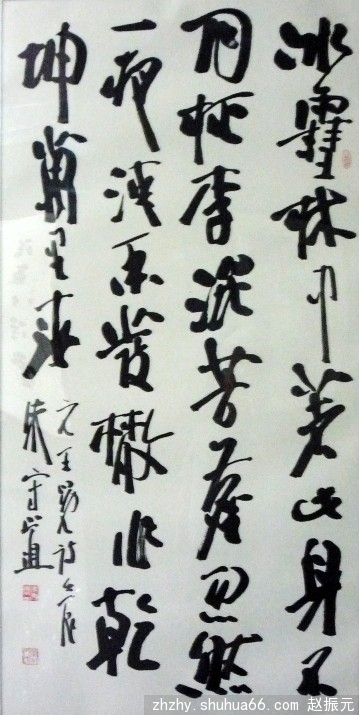 冰雪林中著此身不
同桃李混芳塵忽然
一夜清香發散作乾
坤萬里春
元王冕诗
朱守道
zhzhy.shuhua66.com 赵振元